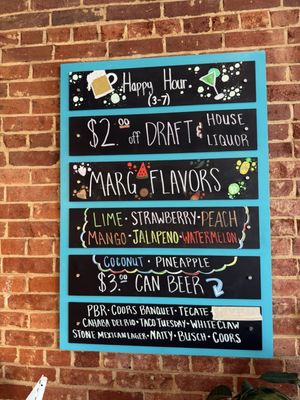 Happy Hour
(3-7)
$2.00 off DRAFT & HOUSE LIQUOR
MARG FLAVORS
LIME · STRAWBERRY · PEACH
MANGO · JALAPENO · WATERMELON
COCONUT · PINEAPPLE
$3.00 CAN BEER
PBR · COORS BANQUET · TECATE
CAHABA DEL RIO · TACO TUESDAY · WHITE CLAW
STONE MEXICAN LAGER · NATTY · BUSCH · COORS